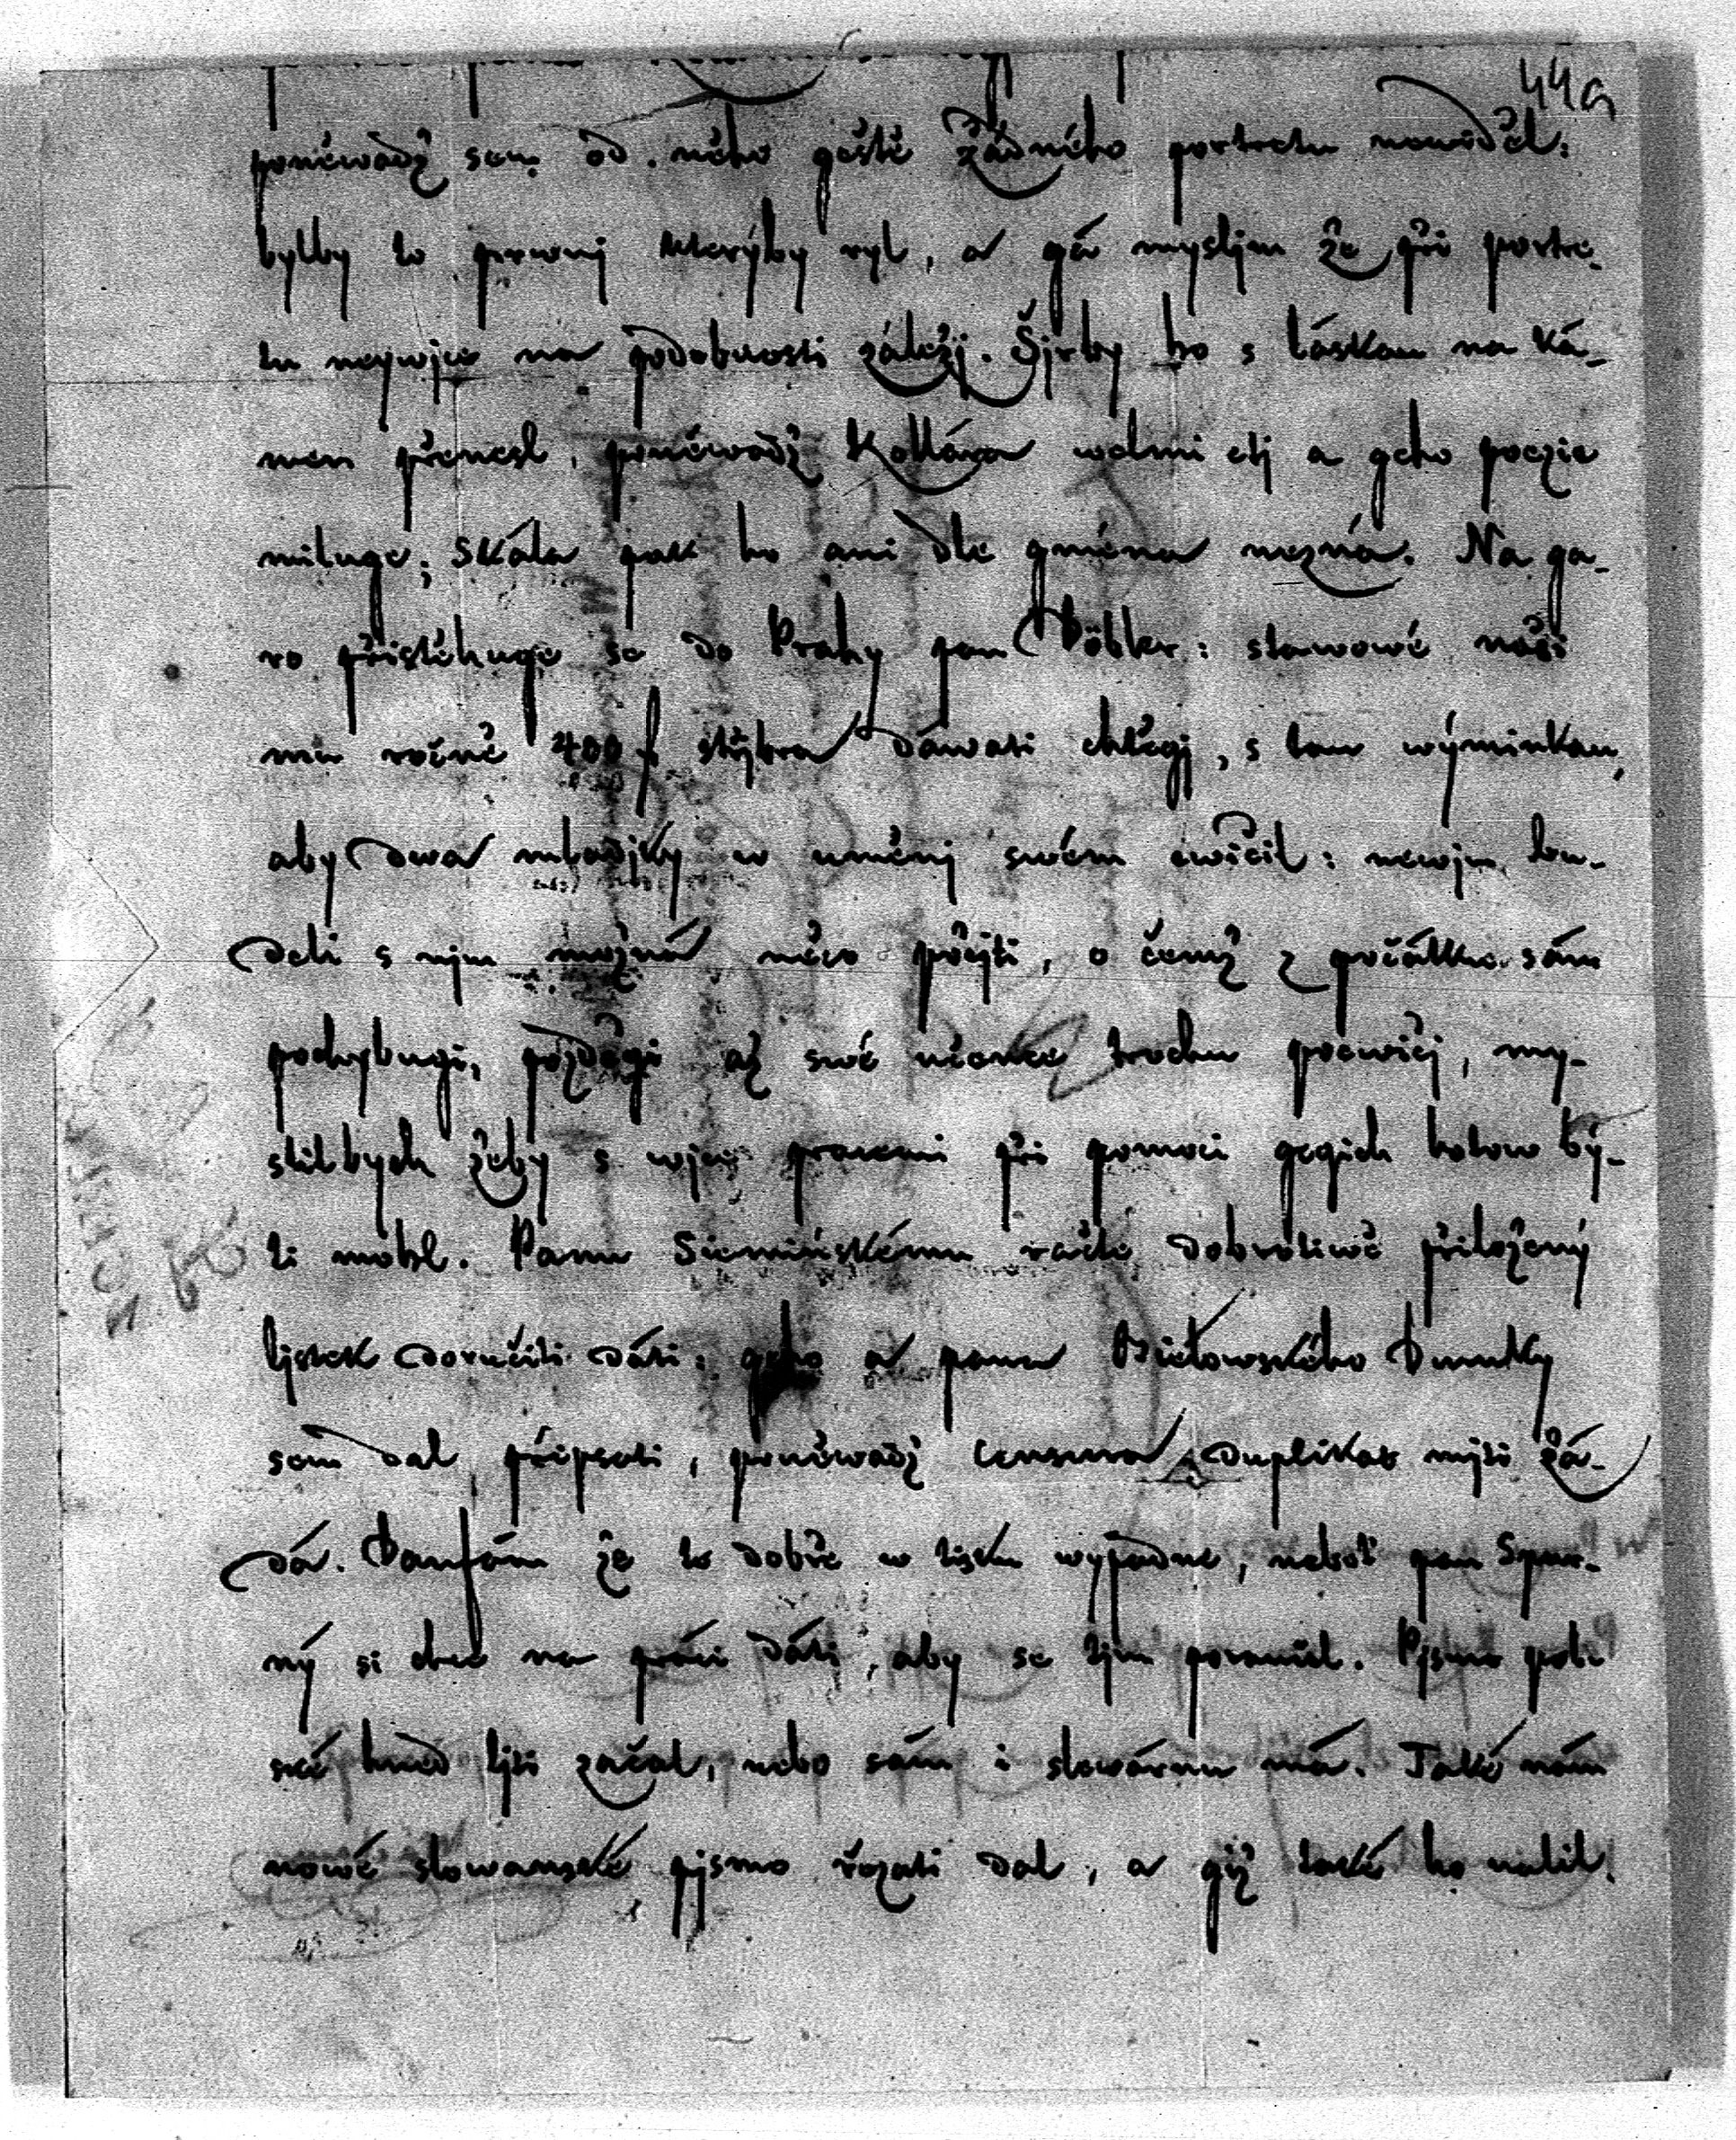 44a
poněwadž sem od něho geště žádného portretu newiděl:
bylby to prwnj kterýby ryl, a gá mysljm že při portre-
tu neywjce na podobnosti záležj. Šjrby ho s láskau na ká-
men přenesl, poněwadž Kollára welmi ctj a geho poezie
miluge; Skála pak ho ani dle gména nezná. Na ga-
ro přistěhuge se do Prahy pan Döbler: stawowé naši
mu ročně 400 f střjbra dáwati chtěgj, s tau wýminkau,
aby dwa mladjky w uměnj swém cwičil: newjm bu-
deli s njm možná něco počjti, o čemž z počátku sám
pochybugi, pozděgi až swé učence trochu pocwičj, my-
slilbych žeby s wjce pracemi při pomoci gegich hotow bý-
ti mohl. Panu Siemińskému račte dobrotiwě přiložený
ljstek doručiti dáti: geho a pana Bielowského Dumky
sem dal připsati, poněwadž Censura duplikat mjti žá-
dá. Daufám že to dobře w tisku wypadne, neboť pan Spur-
ný si chce na práci dáti, aby se tjm poraučel. Pjsmo pol-
ské hned ljti začal, nebo sám i slewárnu má. Také nám
nowé slowanské pjsmo řezati dal, a giž také ho nalil.